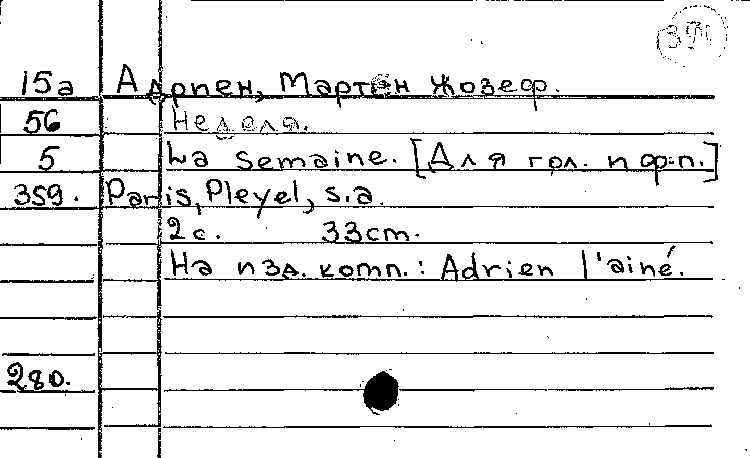 15а Адриен, Мартен Жозеф.
56 Неделя.
5 La semaine. [Для гол. и ф-п.]
359. Paris, Pleyel, s.a.
2с. 33cm.
На изд. комп.: Adrien l'ainé.
280.